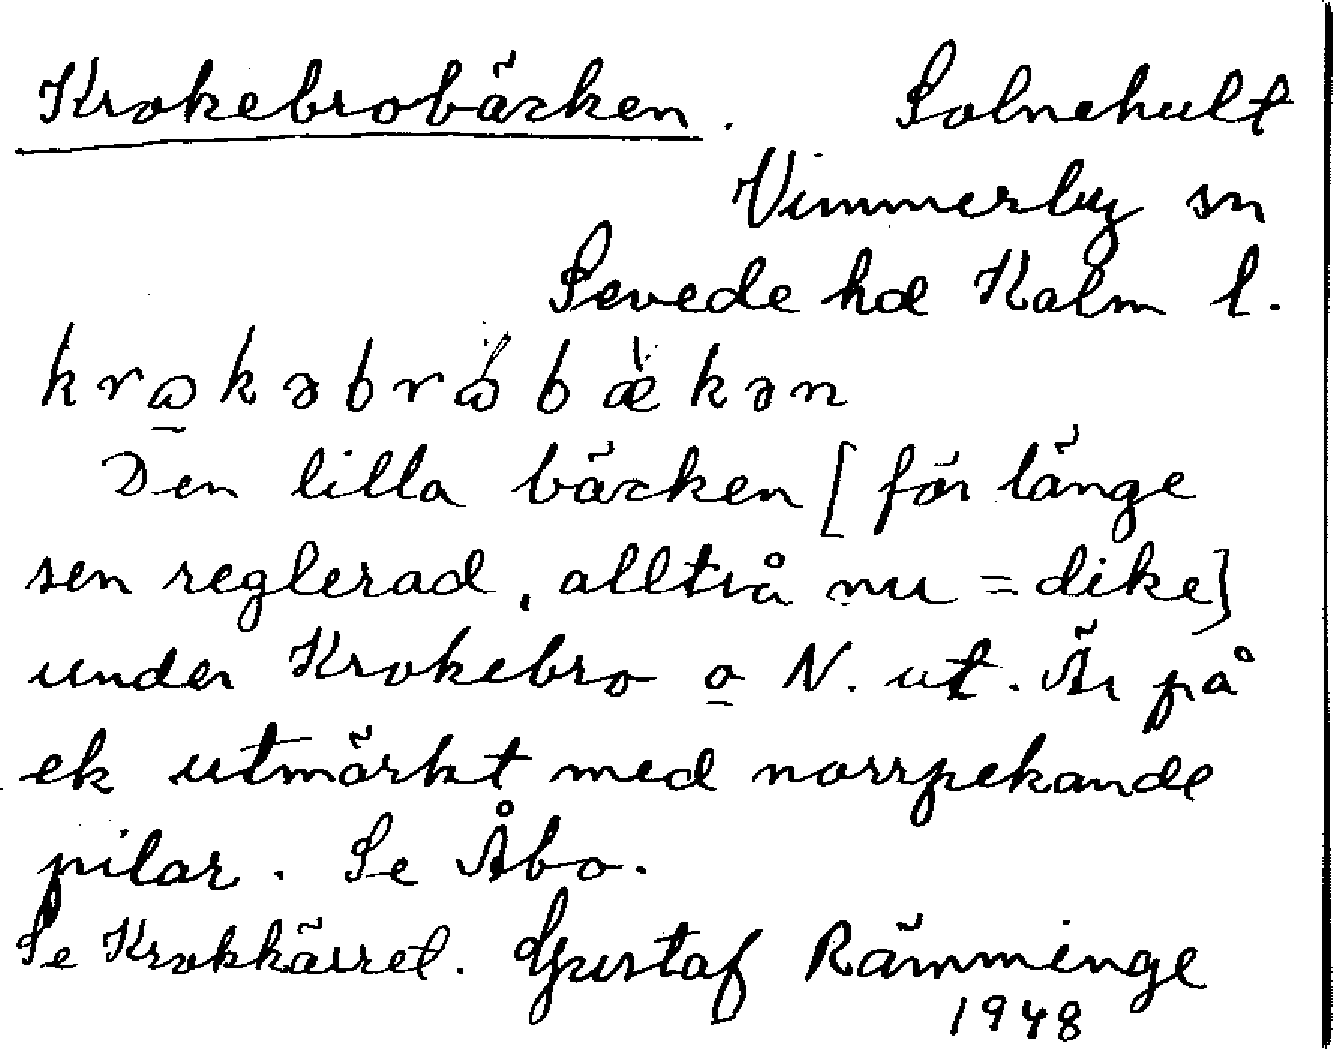 Krokebrobäcken. Solnehult
Vimmerby sn
Sevede hd Kalm l.
krɷkəbrɷ́bæ̀kən
Den lilla bäcken [för länge
sen reglerad, alltså nu = dike]
under Krokebro o N. ut. Är på
ek utmärkt med norrpekande
pilar. Se Åbo.
Se Krokkärret. Gustaf Rämminge
1948